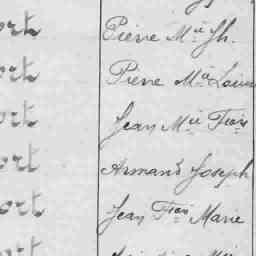 ort Pierre Mie Jh.
ort Pierre Mie Louis
ort Jean Mie Frois
ort Armand Joseph
ort Jean Frois Marie
ort